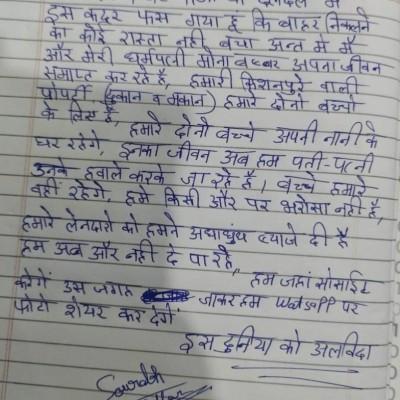 इस कदर फस गया हू कि बाहर निकलने
का कोई रास्ता नही बचा अन्त मे मै
और मेरी धर्मपत्नी मोना बब्बर अपना जीवन
समाप्त कर रहे है, हमारी किशनपुरे वाली
प्रोपर्टी (दुकान व मकान) हमारे दोनो बच्चो
के लिए है, हमारे दोनो बच्चे अपनी नानी के
घर रहेगे, इनका जीवन अब हम पती-पत्नी
उनके हवाले करके जा रहे है, बच्चे हमारे
वही रहेगे, हमे किसी और पर भरोसा नही है,
हमारे लेनदारो को हमने अधाधुंध ब्याजे दी है
हम अब और नही दे पा रहे, हम जहां सोसाईट
करेगें उस जगह जाकर हम Watsaff पर
फोटो शेयर कर देगें
इस दुनिया को अलविदा
Sourabh